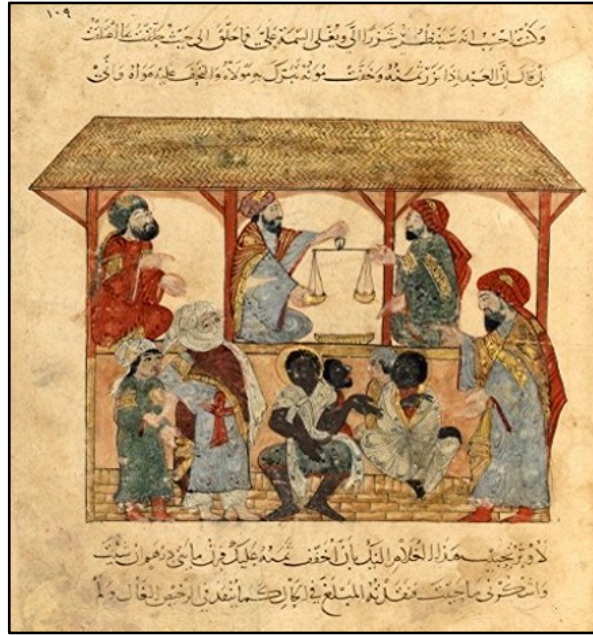 ١٠٩
وكنت احسب انه سينظر شزرا الي ويغلي السيمة علي فما حلق الي حيث حلقت
بل قال ان العبد اذا نزر ثمنه وخفت مونه تبرك به مولاه والتحف عليه هواه واني
لاوثر تحبيب هذا الغلام اليك بان اخفف ثمنه عليك فزن مايتي درهم ان شيت
واشكر لي ما حييت فنقدته المبلغ في الحال كما ينقد في الرخيص ولم